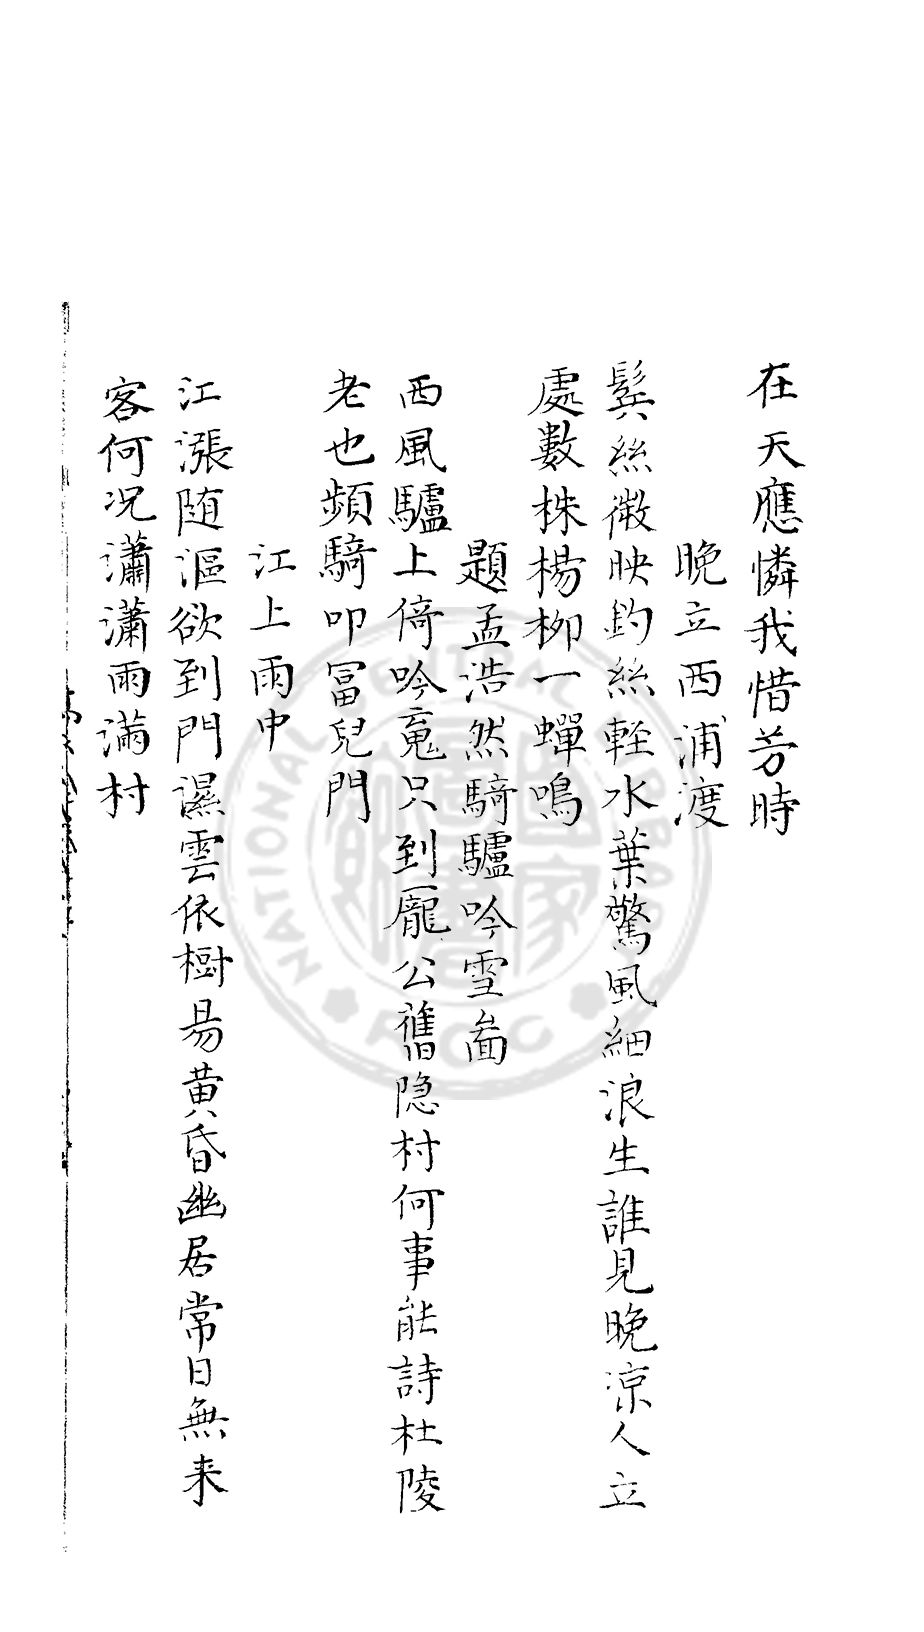 在天應憐我惜芳時
晚立西浦渡
鬓絲微映釣絲輕水葉驚風細浪生誰見晚凉人立
處數株楊柳一蟬鳴
題孟浩然騎驢吟雪啚
西風驢上倚吟䰟只到龐公舊隐村何事能詩杜陵
老也頻騎叩冨兒門
江上雨中
江漲随漚欲到門濕雲依樹易黄昏幽居常日無来
客何况瀟瀟雨满村
NATIONAL CENTRAL LIBRARY
R.O.C.
國家圖書館